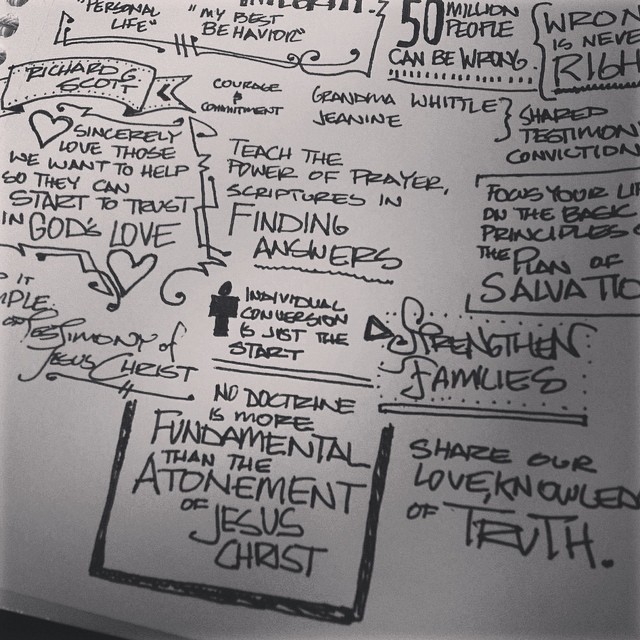 "PERSONAL
LIFE"
"MY BEST
BEHAVIOR"
50 MILLION
PEOPLE
CAN BE WRONG
WRON
IS NEVE
RIGH
RICHARD G.
SCOTT
COURAGE
&
COMMITMENT
GRANDMA WHITTLE
JEANINE
SHARED
TESTIMON
CONVICTION
SINCERELY
LOVE THOSE
WE WANT TO HELP
SO THEY CAN
START TO TRUST
IN GOD'S LOVE
TEACH THE
POWER OF PRAYER,
SCRIPTURES IN
FINDING
ANSWERS
FOCUS YOUR LI
ON THE BASIC
PRINCIPLES
THE PLAN OF
SALVATIO
IT
MPLE.
TESTIMONY of
JESUS CHRIST
INDIVIDUAL
CONVERSION
IS JUST THE
START
STRENGTHEN
FAMILIES
NO DOCTRINE
IS MORE
FUNDAMENTAL
THAN THE
ATONEMENT
OF JESUS
CHRIST
SHARE OUR
LOVE, KNOWLED
OF TRUTH.